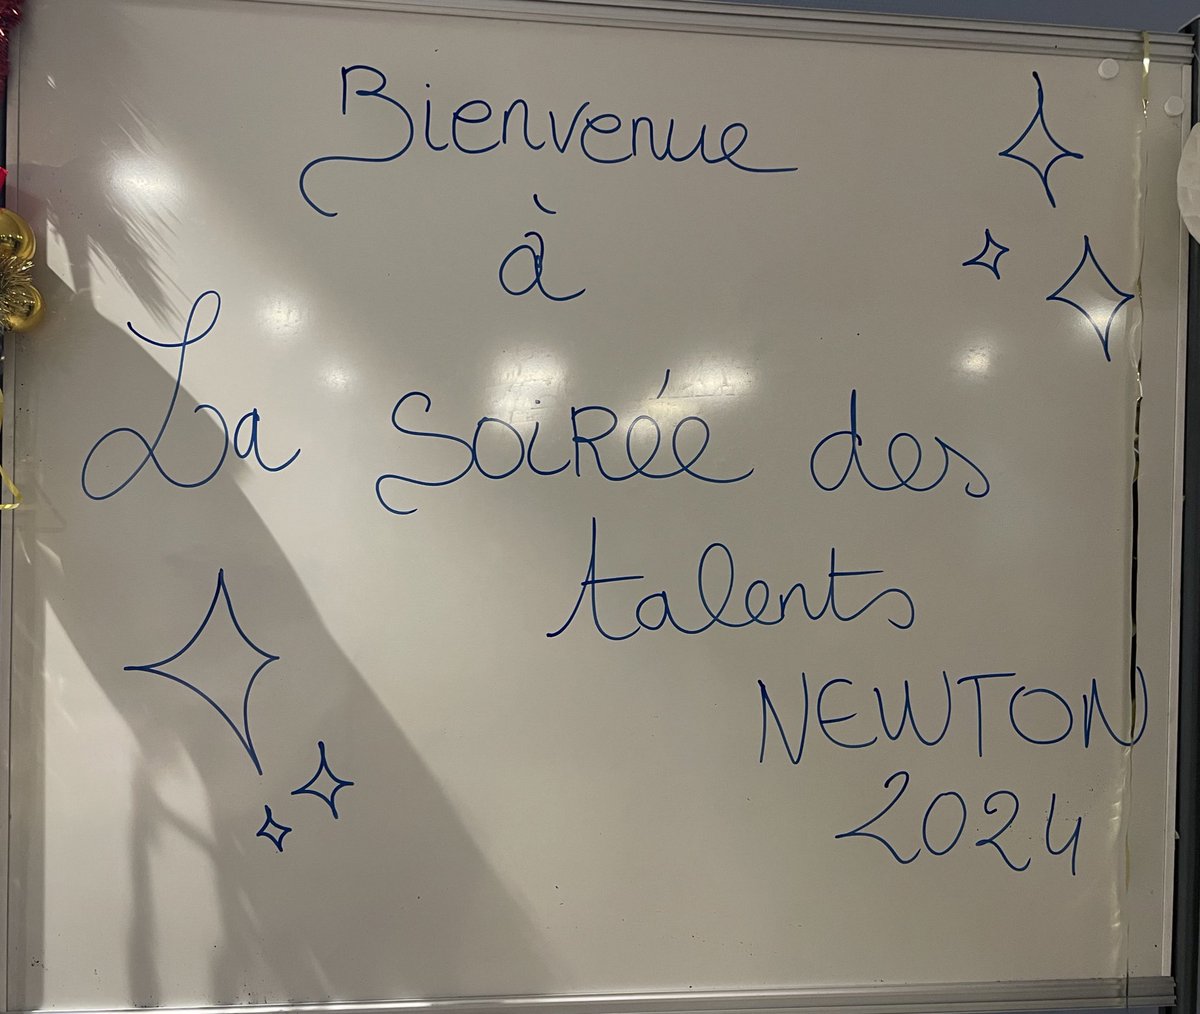 Bienvenue
à
La Soirée des
talents
NEWTON
2024